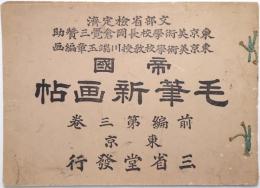 文部省檢定濟
東京美術學校長岡倉覺三賛助
東京美術學校教授川端玉章編画
帝國
毛筆新画帖
前編第三卷
東京
三省堂發行